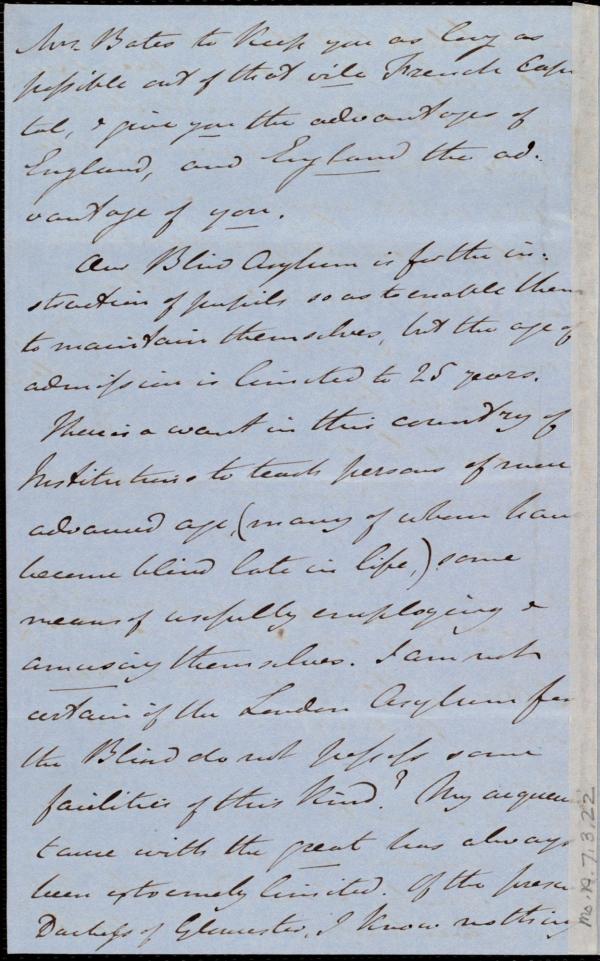 Mrs. Bates to keep you as long as
possible out of that vile French Capi
tal, & give you the advantages of
England, and England the ad-
vantage of you.
Our Blind Asylum is for the in-
struction of pupils so as to enable them
to maintain themselves, but the age of
admission is limited to 25 years.
There is a want in this country of
Institutions to teach persons of more
advanced age, (many of whom have
become blind late in life,) some
means of usefully employing &
amusing themselves. I am not
certain if the London Asylum for
the Blind do not possess some
facilities of this kind? My acquain
tance with the great has always
been extremely limited. Of the prese
Duchess of Gloucester, I know nothing
Ms. A. 7. 3. 22